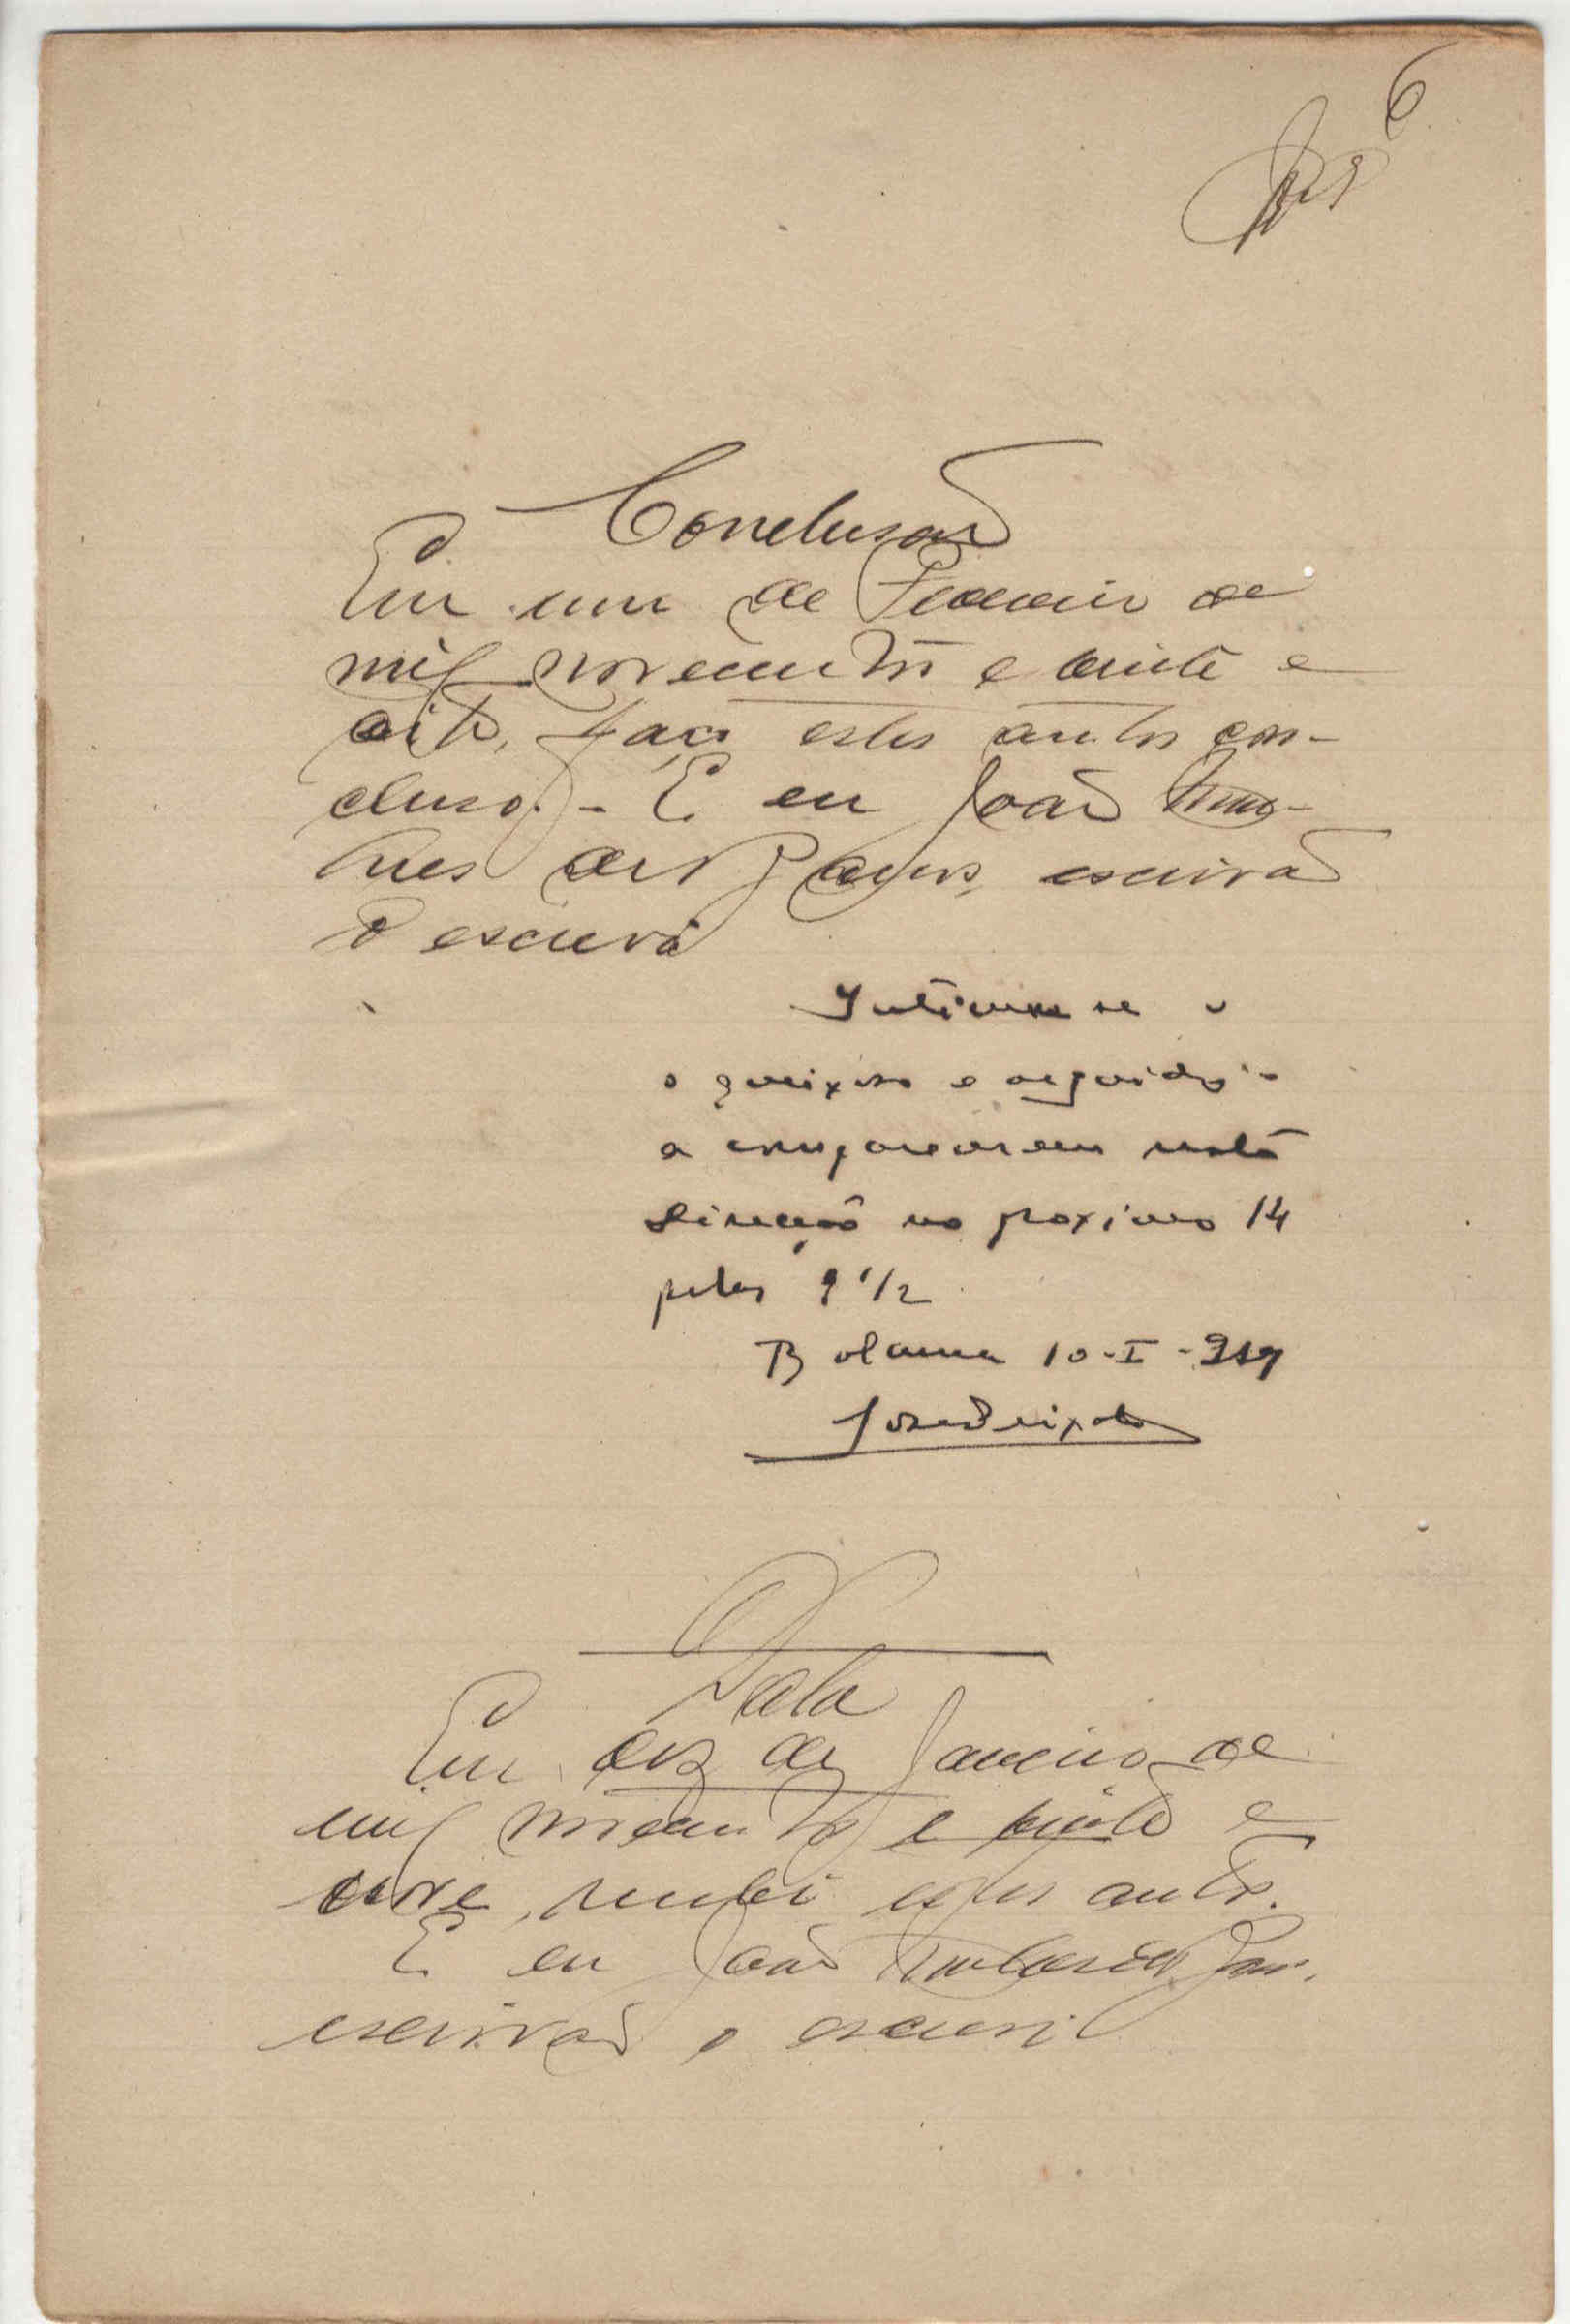 6
Conclusão
Em um de Fevereiro de
mil novecentos e vinte e
oito, faço estes autos con-
clusos. - E eu João
escrivão
o escrevi
Intime se o
o queixoso e arguido
a comparecerem nesta
Direcção no proximo 14
pelas 9 1/2
Bolama 10-I-929
José Peixoto
Data
Em dez de Janeiro de
mil novecentos e vinte e
nove, recebi estes autos.
E eu João
escrivão o escrevi